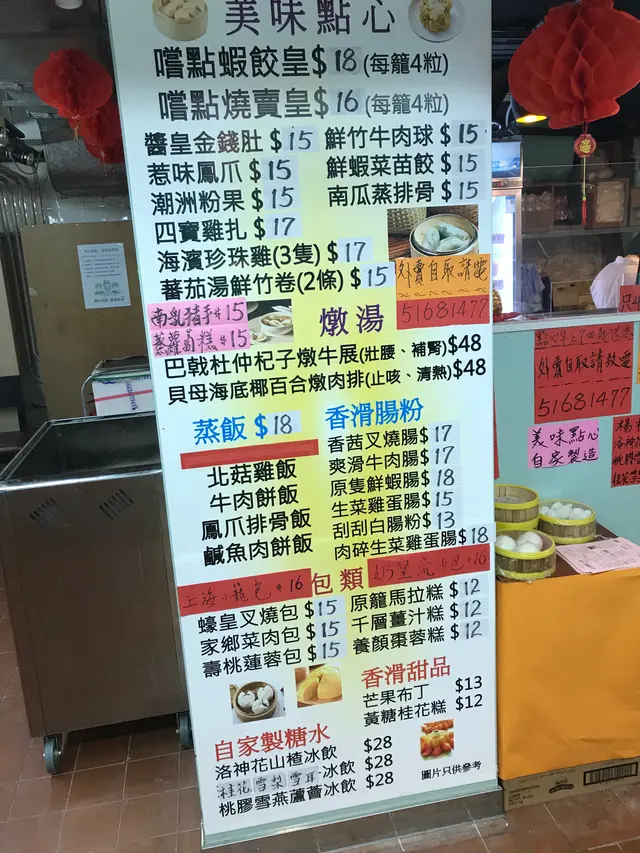 美味點心
嚐點蝦餃皇$18(每籠4粒)
嚐點燒賣皇$16(每籠4粒)
醬皇金錢肚 $15
鮮竹牛肉球 $15
惹味鳳爪 $15
鮮蝦菜苗餃 $15
潮洲粉果 $15
南瓜蒸排骨 $15
四寶雞扎 $17
海濱珍珠雞(3隻) $17
蕃茄湯鮮竹卷(2條) $15
外賣自取請電
51681477
南乳猪手$15
蔥蘿蔔糕$15
燉湯
巴戟杜仲杞子燉牛展(壯腰、補腎)$48
貝母海底椰百合燉肉排(止咳、清熱)$48
蒸飯 $18
北菇雞飯
牛肉餅飯
鳳爪排骨飯
鹹魚肉餅飯
香滑腸粉
香茜叉燒腸$17
爽滑牛肉腸$17
原隻鮮蝦腸$18
生菜雞蛋腸$15
刮刮白腸粉$13
肉碎生菜雞蛋腸$18
上海小籠包$16
包類
奶皇流沙包$16
蠔皇叉燒包 $15
家鄉菜肉包 $15
壽桃蓮蓉包 $15
原籠馬拉糕 $12
千層薑汁糕 $12
養顏棗蓉糕 $12
香滑甜品
芒果布丁 $13
黃糖桂花糕 $12
自家製糖水
洛神花山楂冰飲 $28
桂花雪梨雪耳冰飲 $28
桃膠雪燕蘆薈冰飲 $28
圖片只供參考
外賣自取請致電
51681477
美味點心
自家製造